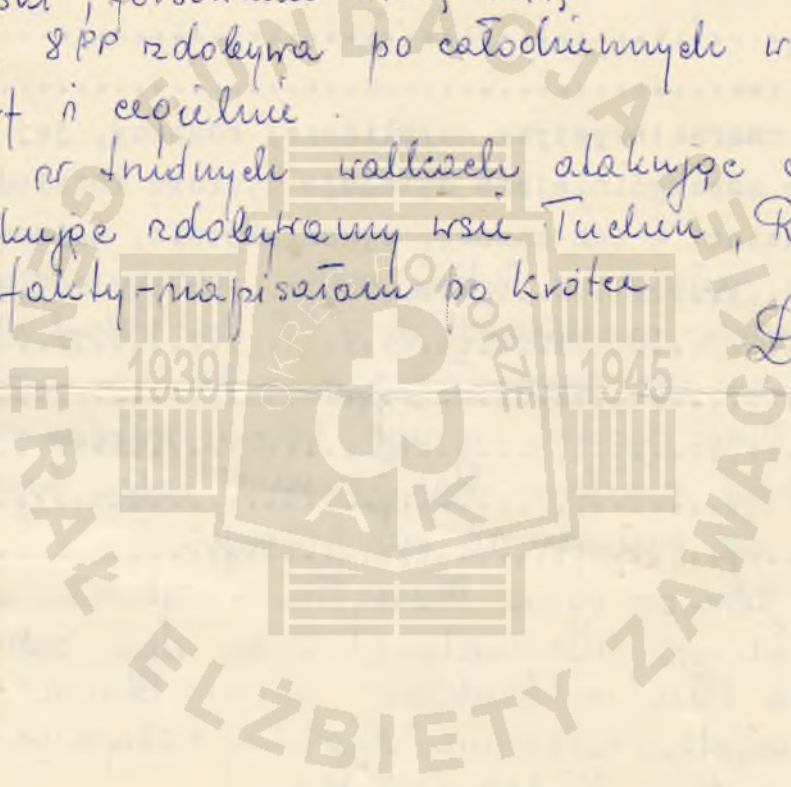 8PP zdobywa po całodziennych w
t i cegielnie.
w trudnych walkach atakując o
kując zdobywamy wsie Tuchin, R
fakty-napisałam po krótce
D
FUNDACJA
GENERAŁ ELŻBIETY ZAWACKIEJ
OKRĘG POMORZE
1939 1945
AK